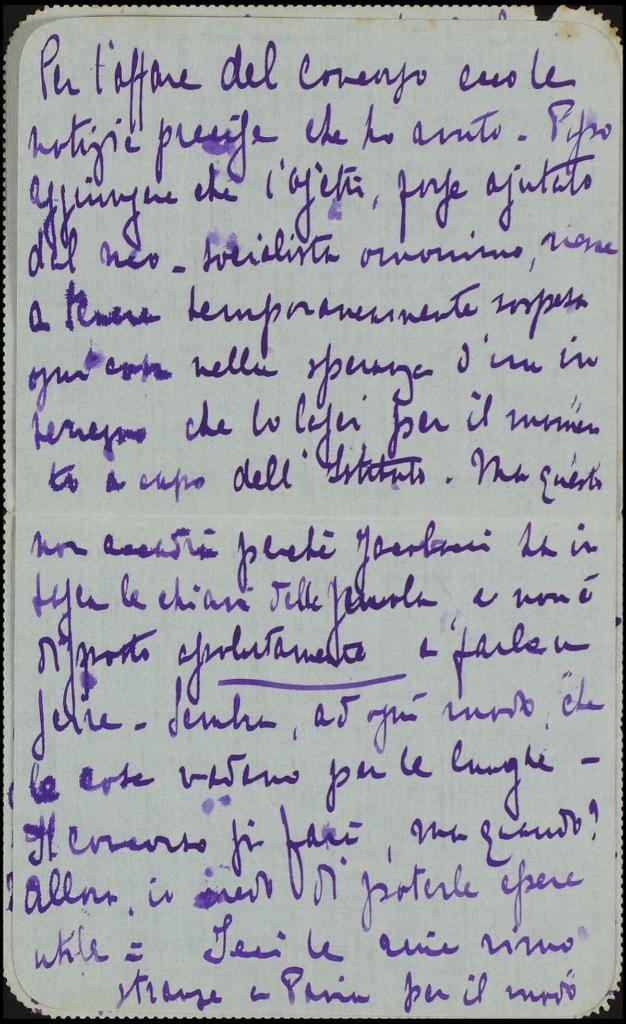 Per l'affare del concorso ecco le
notizie precise che ho avuto - Posso
aggiungere che l'Ojetti, forse ajutato
dal neo-socialista omonimo, riesce
a tenere temporaneamente sospesa
ogni cosa nella speranza d'un in
tervegno che lo lasci per il momen
to a capo dell'Istituto. Ma questo
non accadrà perché Jacobacci ha in
tasca le chiavi della scuola e non è
disposto assolutamente a farla
finire - Sembra, ad ogni modo, che
le cose vadano per le lunghe -
Il concorso si farà, ma quando?
Allora, io credo di poterle essere
utile = Feci le mie rimo
stranze a Pavia per il modo